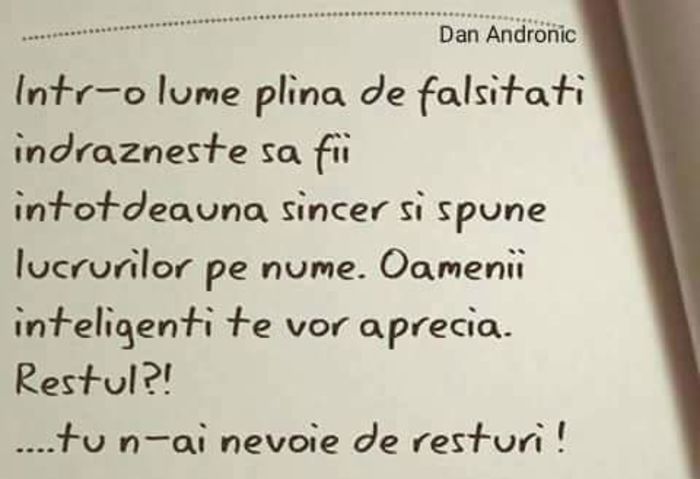 Dan Andronic
Intr-o lume plina de falsitati
indrazneste sa fii
intotdeauna sincer si spune
lucrurilor pe nume. Oamenii
inteligenti te vor aprecia.
Restul?!
....tu n-ai nevoie de resturi !